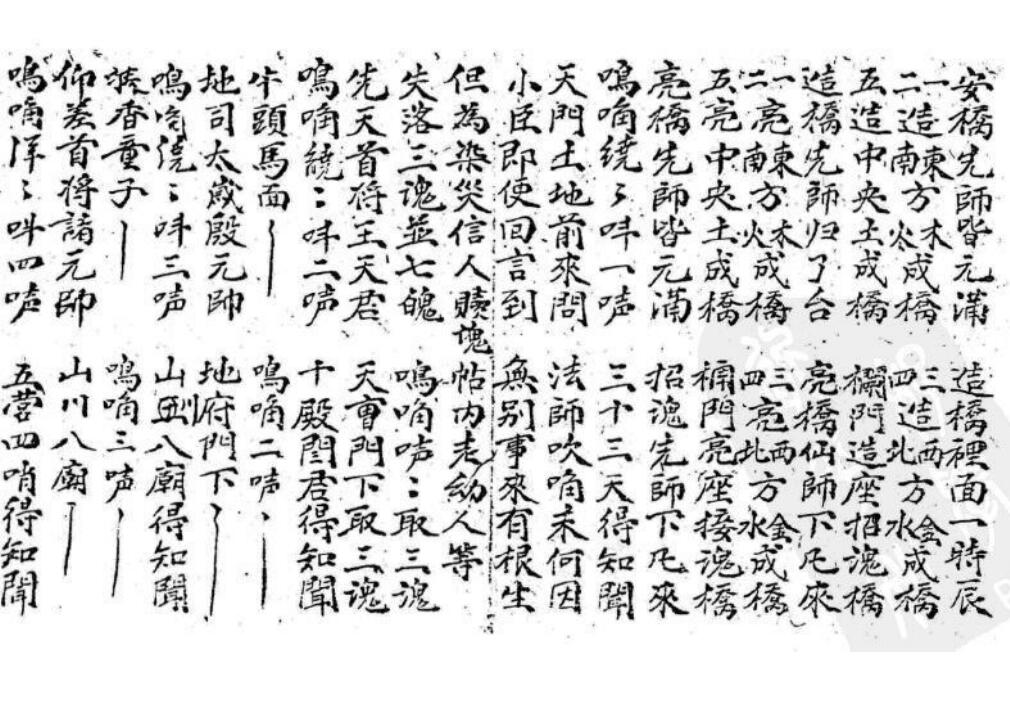 安橋先師皆元滿　造橋裡面一時辰
一二造東南方木火成橋　三四造西北方金水成橋
五造中央土成橋　欄門造座招魂橋
造橋先師归了台　亮橋仙師下凡來
一二亮東南方木火成橋　三四亮西北方金水成橋
五亮中央土成橋　欄門亮座接魂橋
亮橋先師皆元滿　招魂先師下凡來
鳴唃繞々呌一声　三十三天得知聞
天門土地前來問　法師吹唃未何因
小臣即便回言到　無別事來有根生
但為染災信人贖塊　帖内老幼人等
失落三魂並七魄　鳴唃声〻取三魂
先天首将王天君　天曹門下取三魂
鳴唃繞〻呌二声　十殿閻君得知聞
牛頭馬面｜　鳴唃二声｜
地司太歲殷元帥　地府門下｜
鳴唃澆〻呌三声　山川八廟得知聞
香童子｜　鳴唃三声｜
仰差首将諸元帥　山川八廟｜
鳴唃洋々呌四声　五营四哨得知聞